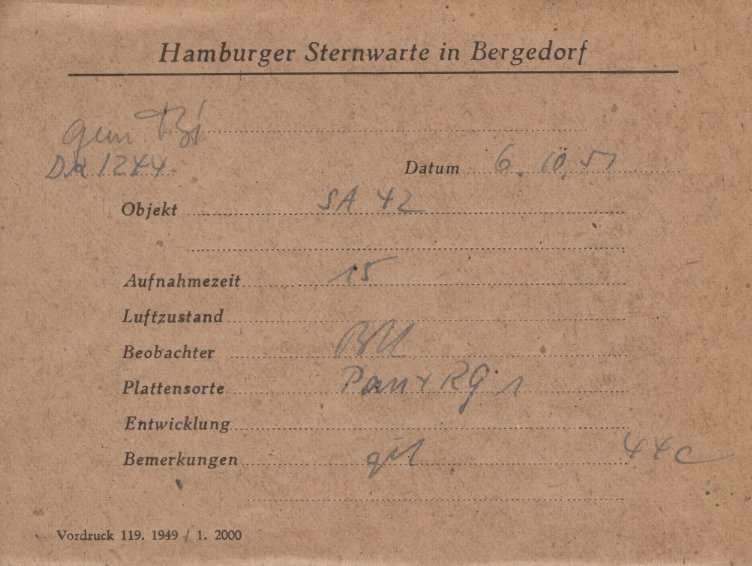 Hamburger Sternwarte in Bergedorf
gem Bi
Da 1244 Datum 6. 10. 51
Objekt SA 42
Aufnahmezeit 15
Luftzustand
Beobachter
Plattensorte Pan + RG 1
Entwicklung
Bemerkungen gut 44c
Vordruck 119. 1949 / 1. 2000